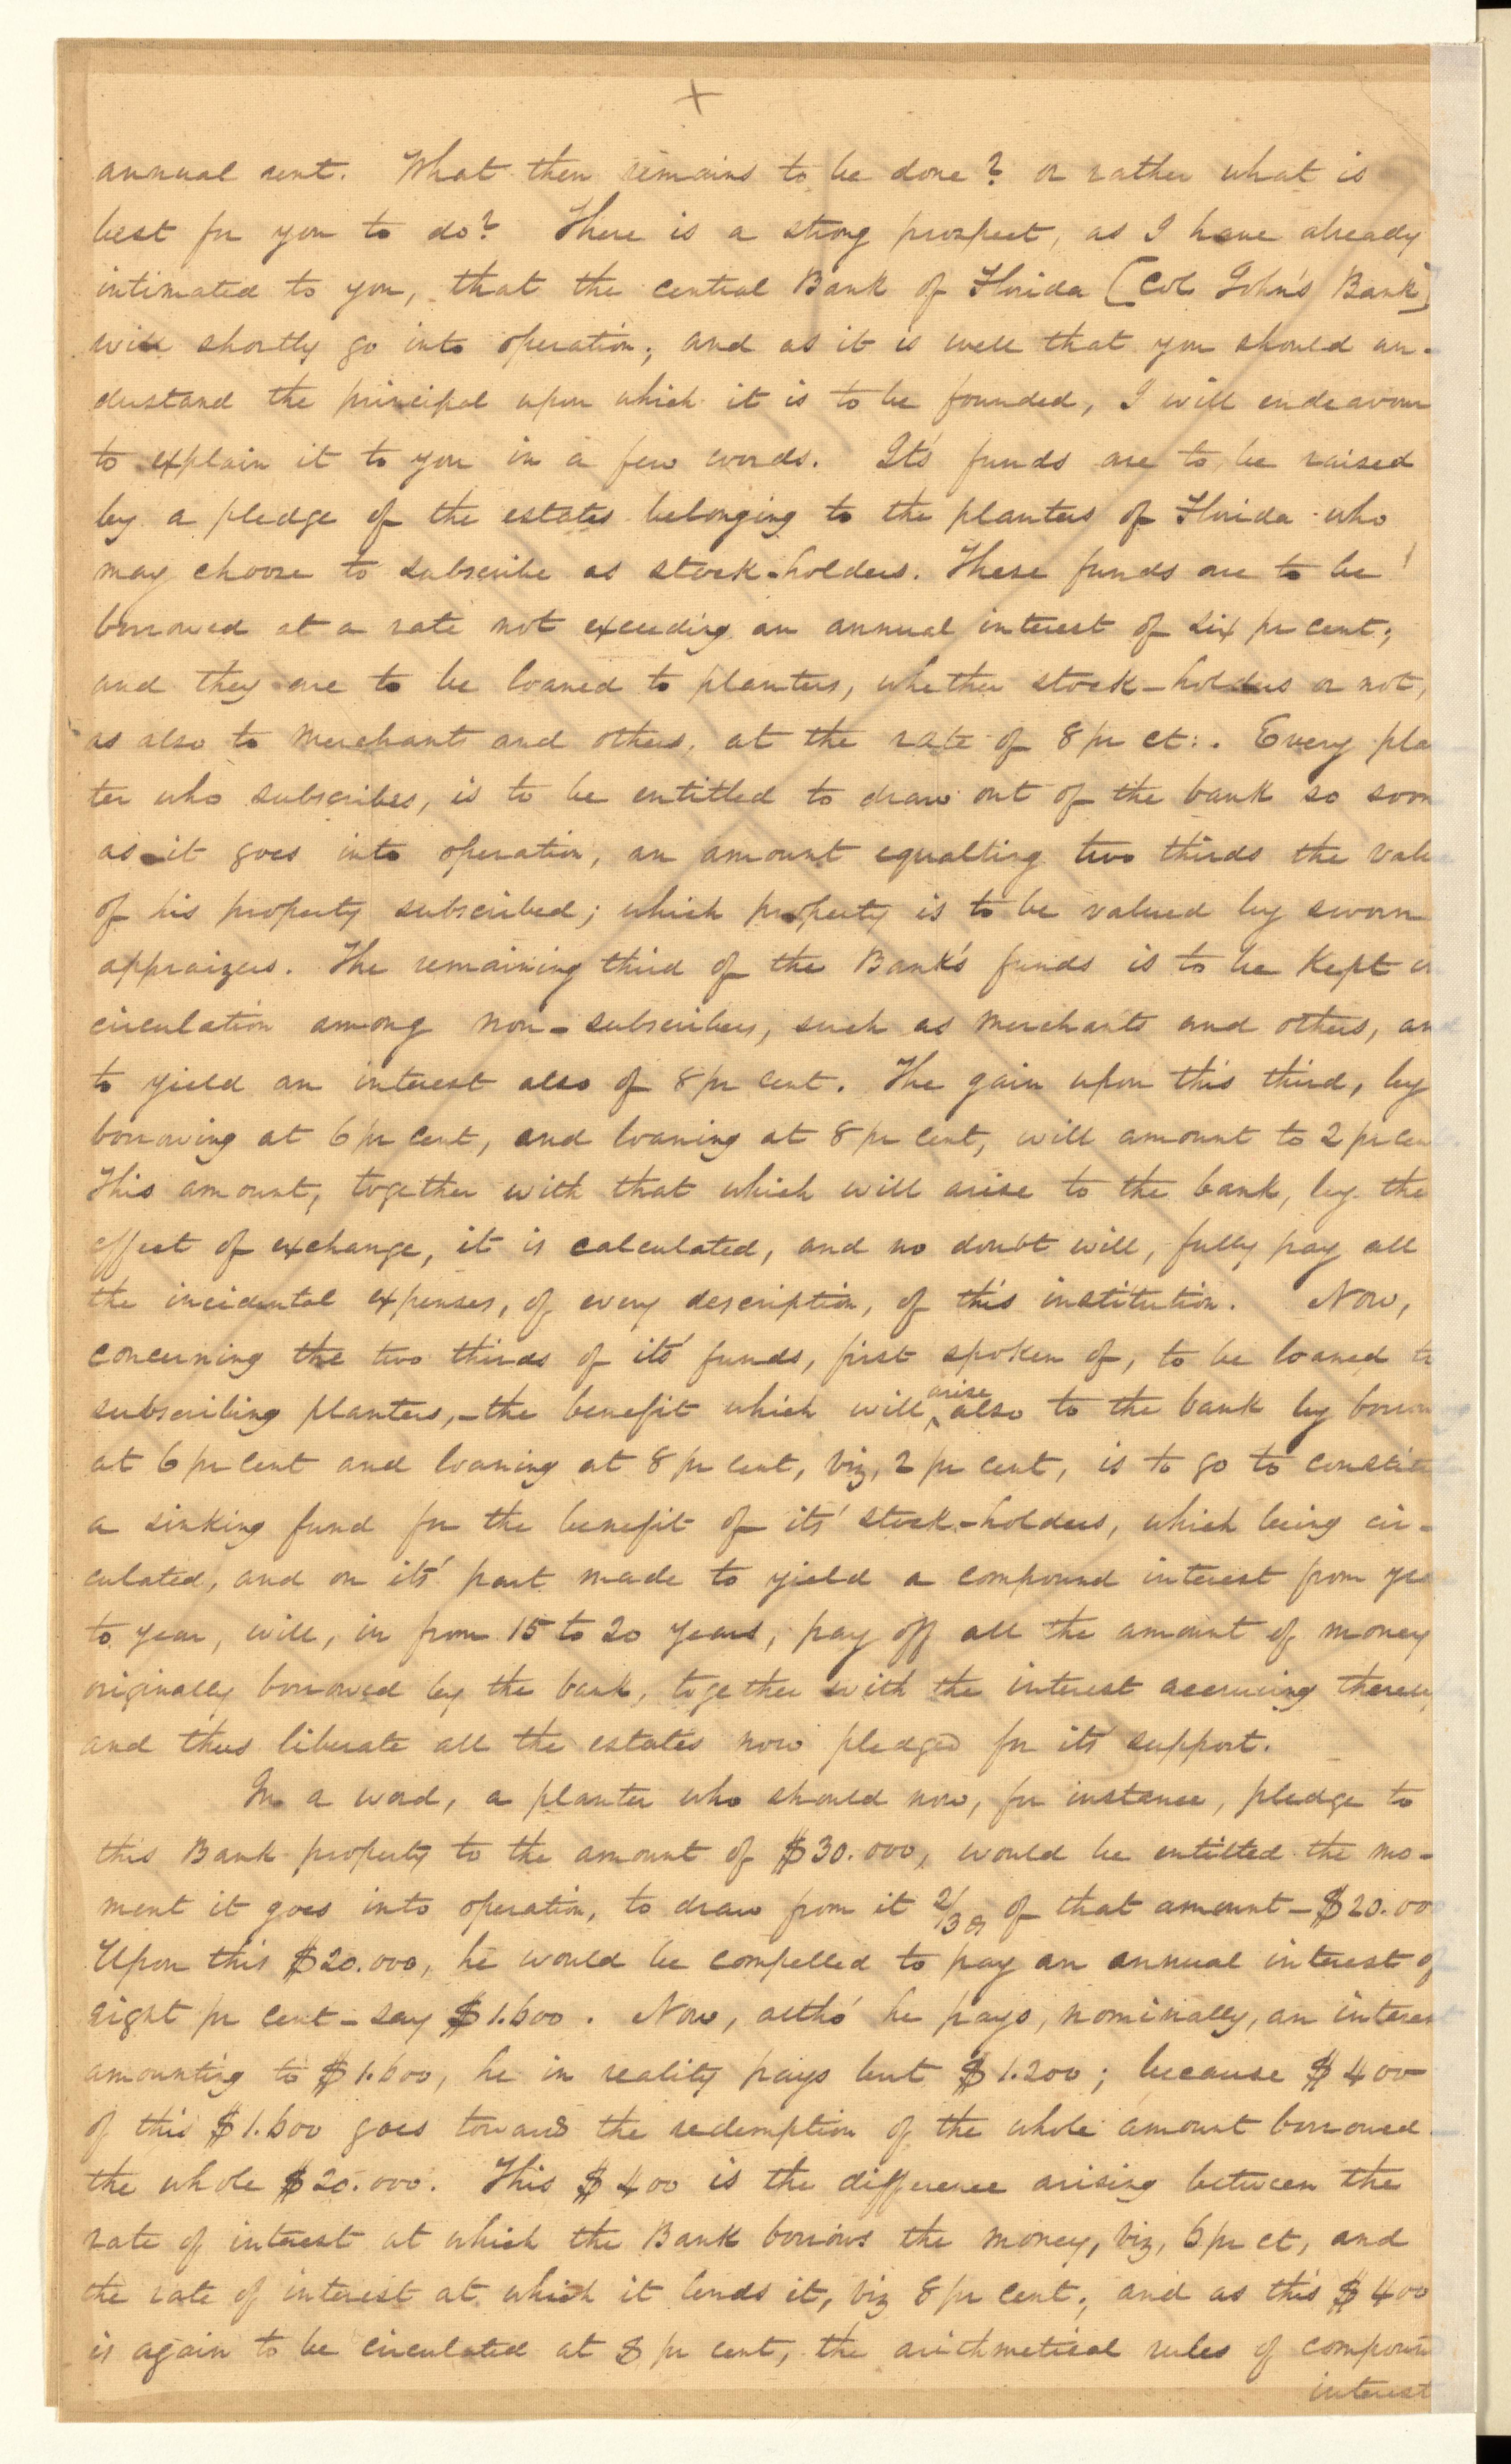 annual rent. What then remains to be done? or rather what is
best for you to do? There is a strong prospect, as I have already
intimated to you, that the central Bank of Florida [Col John's Bank]
will shortly go into operation; and as it is well that you should un-
derstand the principal upon which it is to be founded, I will endeavour
to explain it to you in a few words. It's funds are to be raised
by a pledge of the estates belonging to the planters of Florida who
may choose to subscribe as stock-holders. These funds are to be
borrowed at a rate not exceeding an annual interest of six pr cent;
and they are to be loaned to planters, whether stock-holders or not,
as also to merchants and others, at the rate of 8 pr ct:. Every pla
ter who subscribes, is to be entitled to draw out of the bank so soon
as it goes into operation, an amount equalling two thirds the valu
of his property subscribed; which property is to be valued by sworn
appraizers. The remaining third of the Bank's funds is to be kept in
circulation among non-subscribers, such as merchants and others, an
to yield an interest also of 8 pr cent. The gain upon this third, by
borrowing at 6 pr cent, and loaning at 8 pr cent, will amount to 2 pr cen
This amount, together with that which will arise to the bank, by the
effect of exchange, it is calculated, and no doubt will, fully pay all
the incidental expenses, of every description, of this institution. Now,
concerning the two thirds of its' funds, first spoken of, to be loaned to
subscribing planters,-the benefit which will arise also to the bank by borrow
at 6 pr cent and loaning at 8 pr cent, viz, 2 pr cent, is to go to constitu
a sinking fund for the benefit of its' stock-holders, which being cir-
culated, and on its' part made to yield a compound interest from yea
to year, will, in from 15 to 20 years, pay off all the amount of money
originally borrowed by the bank, together with the interest accruing thereu
and thus liberate all the estates now pledged for its' support.
In a word, a planter who should now, for instance, pledge to
this Bank property to the amount of $30.000, would be entitled the mo-
ment it goes into operation, to draw from it 2/3ds of that amount-$20.00
Upon this $20.000, he would be compelled to pay an annual interest of
eight pr cent-say $1.600. Now, altho' he pays, nominally, an interes
amounting to $1.600, he in reality pays but $1.200; because $400
of this $1.600 goes towards the redemption of the whole amount borrowed
the whole $20.000. This $400 is the difference arising between the
rate of interest at which the Bank borrows the money, viz, 6 pr ct, and
the rate of interest at which it lends it, viz 8 pr cent; and as this $400
is again to be circulated at 8 pr cent, the arithmetical rules of compoun
interest